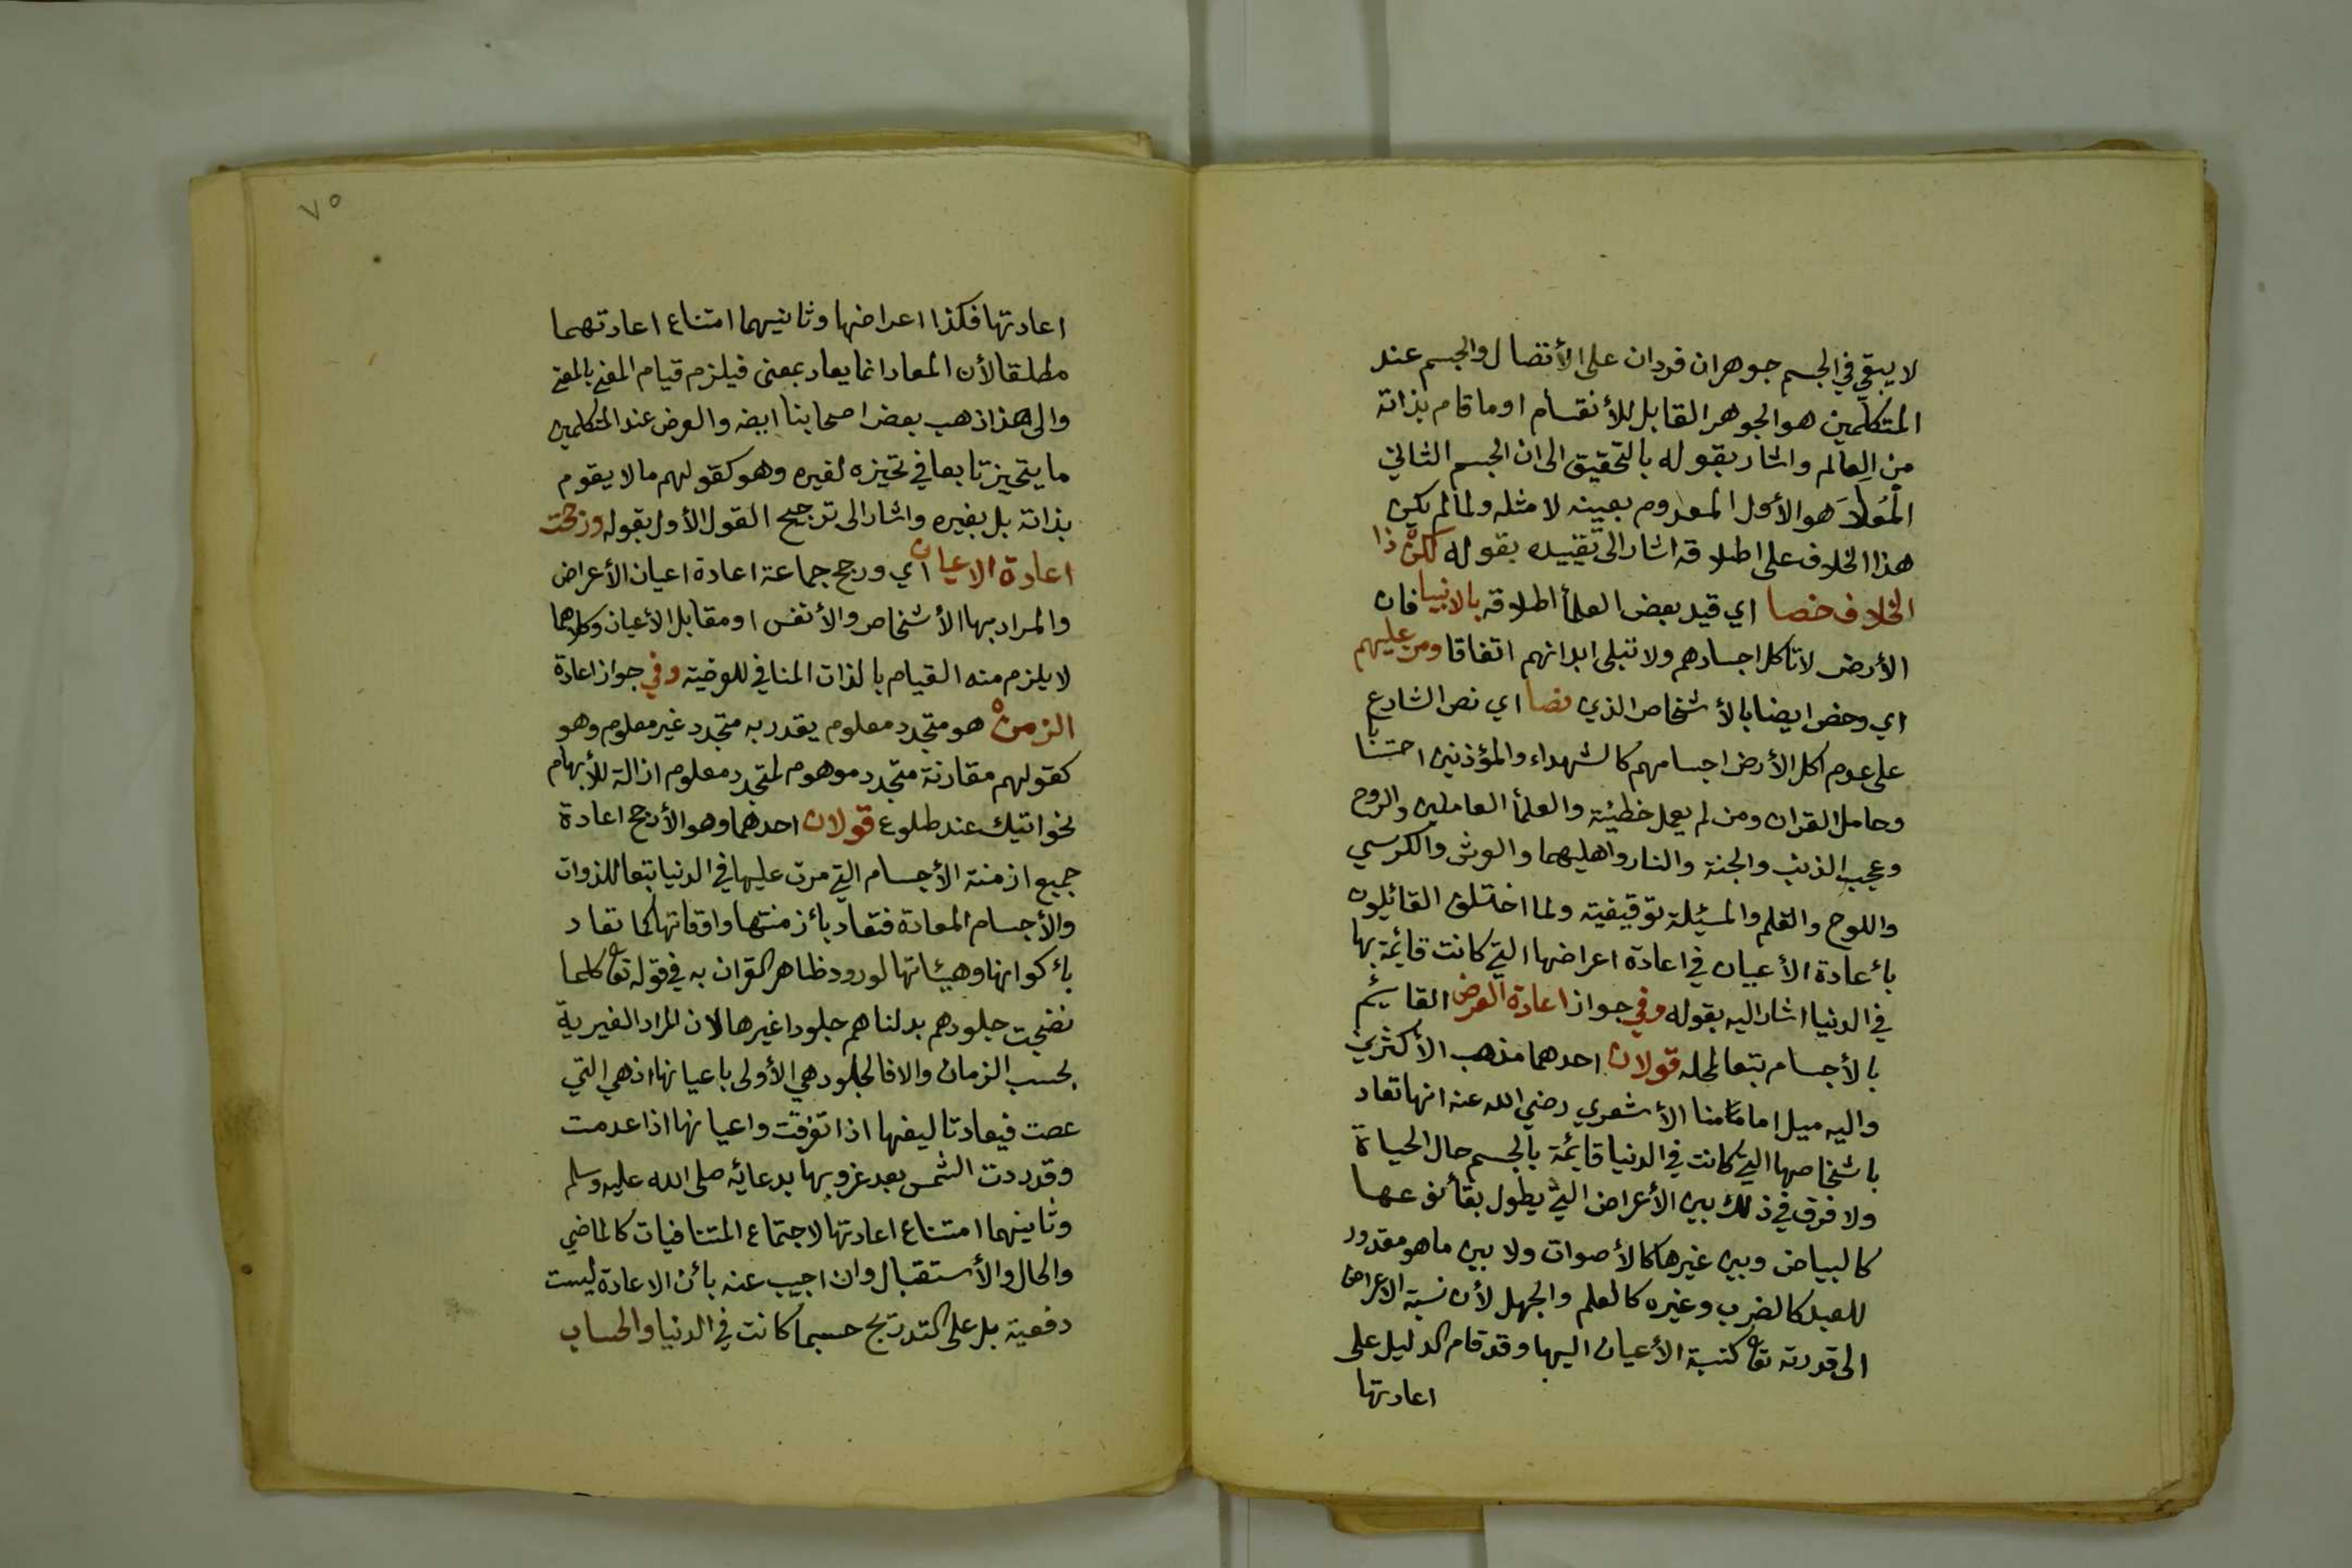 لا يبقي في الجسم جوهران فردان على الأتصال والجسم عند
المتكلمين هو الجوهر القابل للأنقسام اوما قام بذاته
من العالم واشار بقوله بالتحقيق الى ان الجسم الثاني
المُعَادَ هو الأول المعدوم بعينه لا مثله ولما لم يكن
هذا الخلاف على اطلاقه اشار الى تقييده بقوله لكن ذا
الخلاف خصا اي قيد بعض العلمأ اطلاقه بالانبيا فان
الأرض لا تاكل اجسادهم ولا تبلى ابدانهم اتفاقا ومن عليهم
اي وخص ايضا بالأشخاص الذي نصا اي نص الشارع
على عدم اكل الأرض اجسامهم كالشهداء والمؤذنين احتسابا
وحامل القران ومن لم يعمل خطيئة والعلمأ العاملين والروح
وعجب الذنب والجنة والنار واهليهما والعرش والكرسي
واللوح والقلم والمسئلة توقيفية ولما اختلف القائلون
بأعادة الأعيان في اعادة اعراضها التي كانت قائمة بها
في الدنيا اشار اليه بقوله وفي جواز اعادة العرض القائم
بالأجسام تبعا لمحله قولان احدهما مذهب الأكثرين
واليه ميل امامنا الأشعري رضي الله عنه انها تعاد
باشخاصها التي كانت في الدنيا قائمة بالجسم حال الحياة
ولا فرق في ذلك بين الأعراض التي يطول بقأ نوعها
كالبياض وبين غيرها كالأصوات ولا بين ما هو مقدور
للعبد كالضرب وغيره كالعلم والجهل لأن نسبة الاعراض
الى قدرته تعا كنسبة الأعيان اليها وقد قام الدليل على
اعادتها
٧٥
اعادتها فكذا اعراضها وثانيهما امتناع اعادتهما
مطلقا لأن المعاد انما يعاد بمعنى فيلزم قيام المعنى بالمعنى
والى هذا ذهب بعض اصحابنا ايضه والعرض عند المتكلمين
ما يتحيز تابعا في تحيزه لغيره وهو كقولهم ما لا يقوم
بذاته بل بغيره واشار الى ترجيح القول الأول بقوله ورجحت
اعادة الاعيان اي ورجح جماعة اعادة اعيان الأعراض
والمراد بها الأشخاص والأنفس او مقابل الأعيان وكلاهما
لا يلزم منه القيام بالذات المنافي للعرضية وفي جواز اعادة
الزمن هو متجدد معلوم يقدر به متجدد غير معلوم وهو
كقولهم مقارنة متجدد موهوم لمتجدد معلوم ازالة للأبهام
نحو اتيك عند طلوع قولان احدهما وهو الأرجح اعادة
جميع ازمنة الأجسام التي مرت عليها في الدنيا تبعا للذوات
والأجسام المعادة فتعاد بأزمنتها واوقاتها كما تعاد
بأكوانها وهيئاتها لورود ظاهر القران به في قوله تعا كلما
نضجت جلودهم بدلناهم جلودا غيرها لان المراد الغيرية
بحسب الزمان والا فالجلود هي الأولى باعيانها اذ هي التي
عصت فيعاد تاليفها اذا تفرقت واعيانها اذا عدمت
وقد ردت الشمس بعد غروبها بدعائه صلى الله عليه وسلم
وثانيهما امتناع اعادتها لاجتماع المتنافيات كالماضي
والحال والأستقبال وان اجيب عنه بأن الاعادة ليست
دفعية بل على التدريج حسبما كانت في الدنيا والحساب